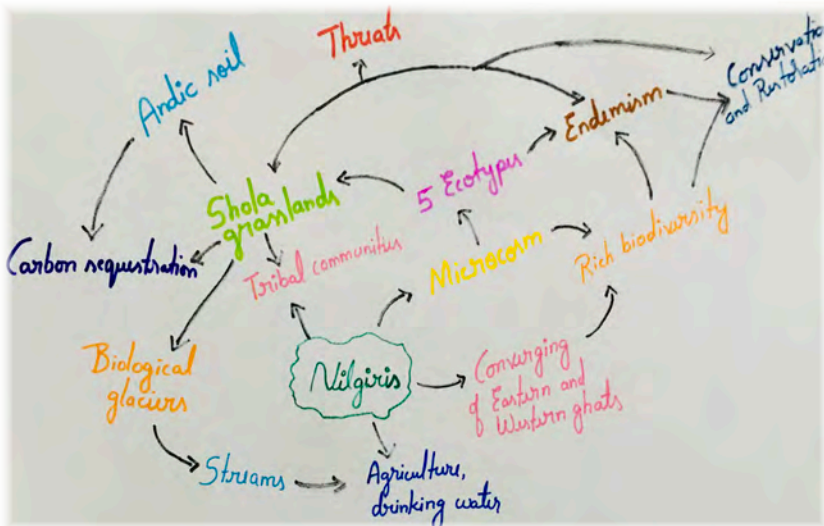 Threats
Conservation
and Restoration
Andic soil
Endemism
5 Ecotypes
Shola
grasslands
Rich biodiversity
Carbon sequestration
Tribal communities
Microcosm
Biological
glaciers
Nilgiris
Converging
of Eastern and
Western ghats
Streams
Agriculture,
drinking water